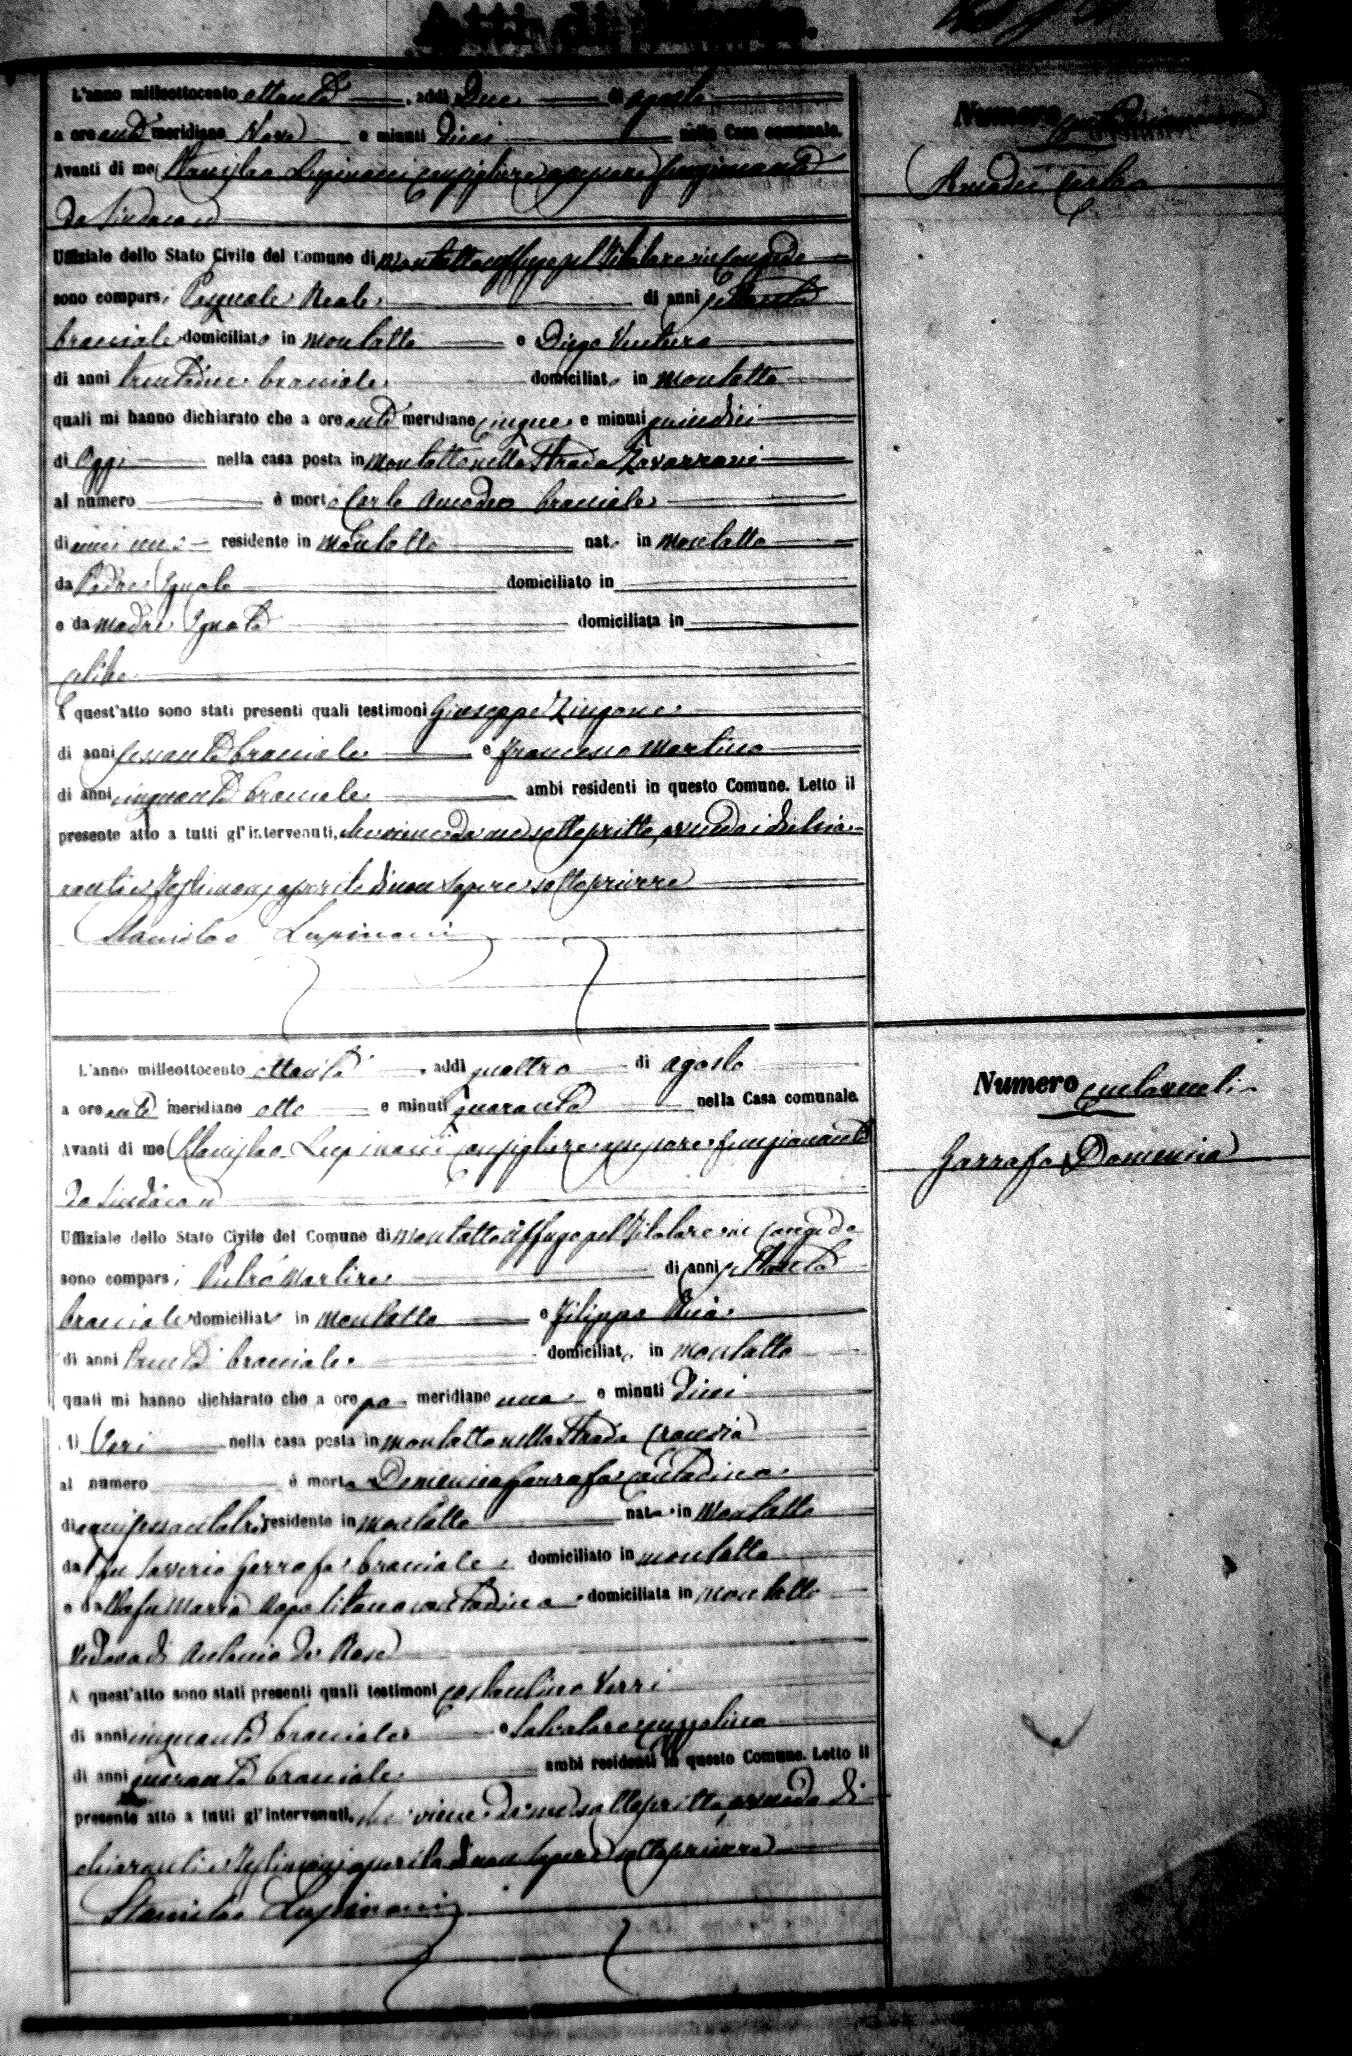 Atti di Morte.
L'anno milleottocento ottanta, addì due di agosto
a ore anti meridiane Nove e minuti dieci nella Casa comunale.
Avanti di me Stanislao Lupinacci consigliere assessore funzionante
da Sindaco
Uffiziale dello Stato Civile del Comune di Montalto Uffugo pel titolare in congedo
sono comparsi Pasquale Reale di anni settanta
bracciale domiciliato in Montalto e Diego Ventura
di anni trentadue bracciale domiciliato in Montalto
quali mi hanno dichiarato che a ore anti meridiane cinque e minuti quindici
di Oggi nella casa posta in Montalto nella Strada
al numero è morto Carlo Amodeo bracciale
di anni residente in Montalto nato in Montalto
da Padre Ignoto domiciliato in
e da Madre Ignota domiciliata in
celibe
A quest'atto sono stati presenti quali testimoni Giuseppe Zingone
di anni sessanta bracciale e Francesco Martino
di anni cinquanta bracciale ambi residenti in questo Comune. Letto il
presente atto a tutti gl'intervenuti, che viene da me sottoscritto, avendo i dichia-
ranti e testimoni asserito di non sapere sottoscrivere
Stanislao Lupinacci
Numero
Amodei Carlo
L'anno milleottocento ottanta, addì quattro di agosto
a ore anti meridiane otto e minuti quaranta nella Casa comunale.
Avanti di me Stanislao Lupinacci consigliere assessore funzionante
da Sindaco
Uffiziale dello Stato Civile del Comune di Montalto Uffugo pel titolare in congedo
sono comparsi Pietro Martire di anni settanta
bracciale domiciliato in Montalto e Filippo
di anni trenta bracciale domiciliato in Montalto
quali mi hanno dichiarato che a ore po meridiane una e minuti dieci
di Ieri nella casa posta in Montalto nella Strada
al numero è morta Domenica Garrafa contadina
di anni sessantatre residente in Montalto nata in Montalto
da fu Saverio Garrafa bracciale domiciliato in Montalto
e da fu Maria Napolitano contadina domiciliata in Montalto
Vedova di Antonio de Rose
A quest'atto sono stati presenti quali testimoni Costantino Verri
di anni cinquanta bracciale e Salvatore
di anni quaranta bracciale ambi residenti in questo Comune. Letto il
presente atto a tutti gl'intervenuti, che viene da me sottoscritto, avendo i di-
chiaranti e testimoni asserito di non sapere sottoscrivere
Stanislao Lupinacci
Numero
Garrafa Domenica